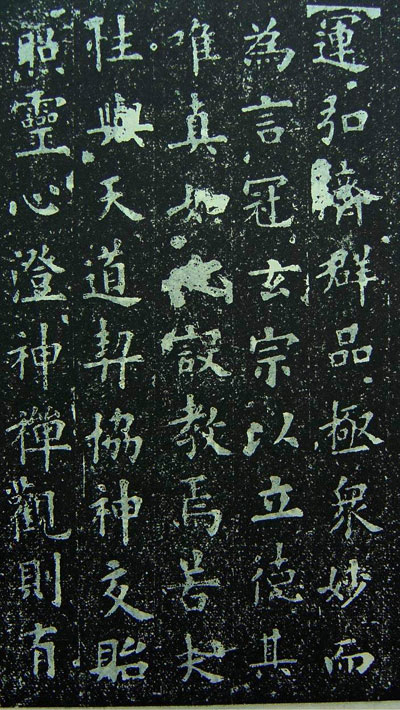 運弘濟群品極衆妙而
為言冠玄宗以立德其
唯真如設教焉若夫
性與天道契協神交貽
照靈心澄神禪觀則有